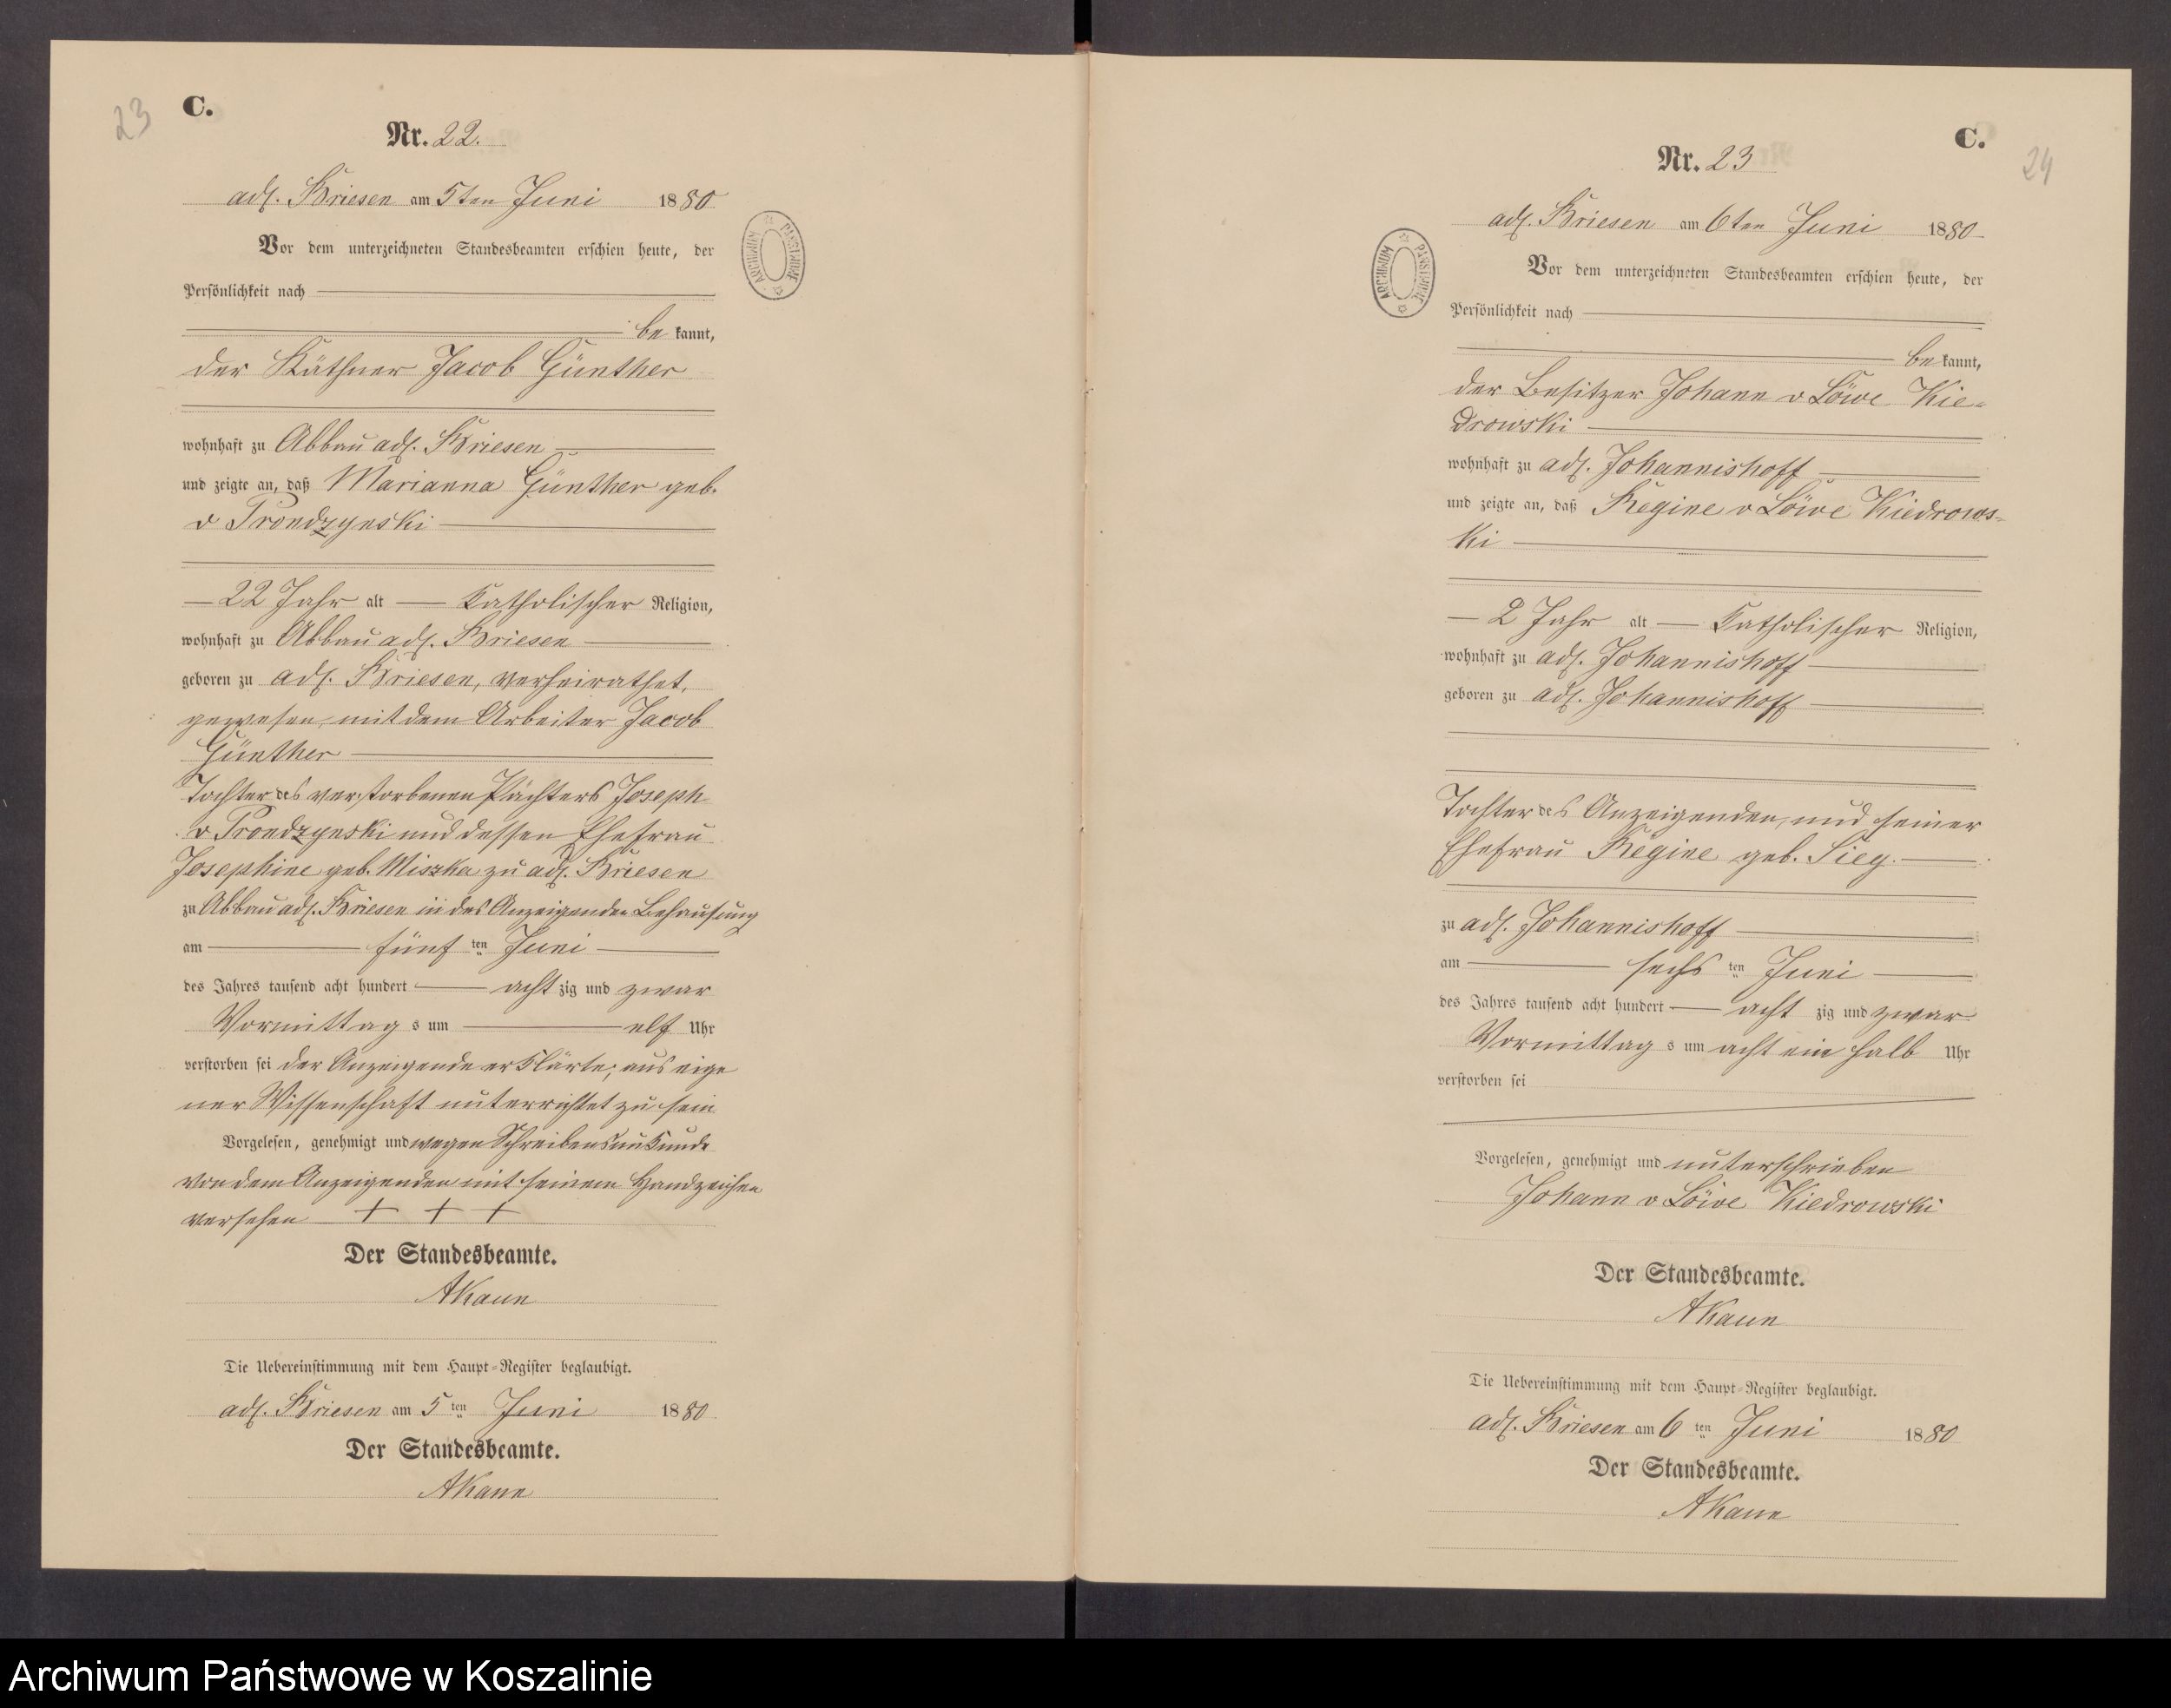 23
C.
Nr. 22.
adl. Briesen am 5ten Juni 1880
Vor dem unterzeichneten Standesbeamten erschien heute, der
Persönlichkeit nach
be kannt,
der Käthner Jacob Günther
wohnhaft zu Abbau adl. Briesen
und zeigte an, daß Marianna Günther geb.
v Prondzynski
22 Jahr alt Katholischer Religion,
wohnhaft zu Abbau adl. Briesen
geboren zu adl. Briesen, verheirathet,
gewesen mit dem Arbeiter Jacob
Günther
Tochter des verstorbenen Pächters Joseph
v Prondzynski und dessen Ehefrau
Josephine geb. Miszka zu adl. Briesen
zu Abbau adl. Briesen in des Anzeigenden Behausung
am fünf ten Juni
des Jahres tausend acht hundert acht zig und zwar
Vormittag s um elf Uhr
verstorben sei der Anzeigende erklärte, aus eige
ner Wissenschaft unterrichtet zu sein
Vorgelesen, genehmigt und wegen Schreibensunkunde
von dem Anzeigenden mit seinem Handzeichen
versehen + + +
Der Standesbeamte.
AKaun
Die Uebereinstimmung mit dem Haupt-Register beglaubigt.
adl. Briesen am 5 ten Juni 1880
Der Standesbeamte.
AKaun
ARCHIWUM PAŃSTWOWE
C.
24
Nr. 23
adl. Briesen am 6ten Juni 1880
Vor dem unterzeichneten Standesbeamten erschien heute, der
Persönlichkeit nach
be kannt,
der Besitzer Johann v Löwe Kie-
drowski
wohnhaft zu adl. Johannishoff
und zeigte an, daß Regine v Löwe Kiedrows-
ki
2 Jahr alt Katholischer Religion,
wohnhaft zu adl. Johannishoff
geboren zu adl. Johannishoff
Tochter des Anzeigenden, und seiner
Ehefrau Regine geb. Sieg.
zu adl. Johannishoff
am sechs ten Juni
des Jahres tausend acht hundert acht zig und zwar
Vormittag s um acht ein halb Uhr
verstorben sei
Vorgelesen, genehmigt und unterschrieben
Johann v Löwe Kiedrowski
Der Standesbeamte.
AKaun
Die Uebereinstimmung mit dem Haupt-Register beglaubigt.
adl. Briesen am 6 ten Juni 1880
Der Standesbeamte.
AKaun
ARCHIWUM PAŃSTWOWE
Archiwum Państwowe w Koszalinie